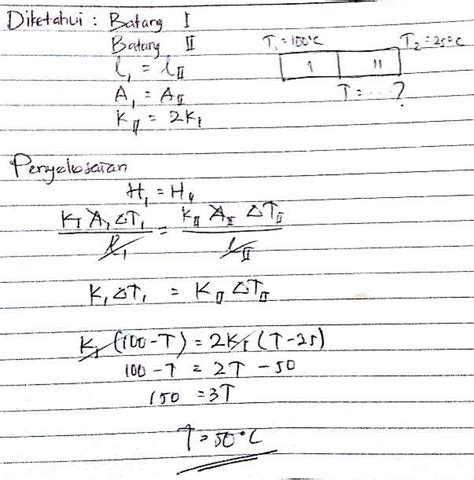 Diketahui : Batang I
Batang II
l₁ = l_II
A₁ = A_II
K_II = 2K_I
T₁ = 100°C
T₂ = 25°C
I II
T = ... ?
Penyelesaian
H₁ = H_II
K_I A₁ ΔT₁ / l₁ = K_II A_II ΔT_II / l_II
K₁ ΔT₁ = K_II ΔT_II
K₁ (100 - T) = 2K_I (T - 25)
100 - T = 2T - 50
150 = 3T
T = 50°C